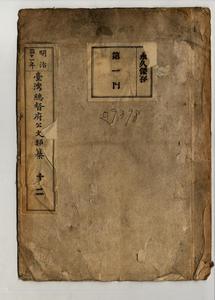 永久保存
第一門
明治
四十一年
臺灣總督府公文類纂
十二